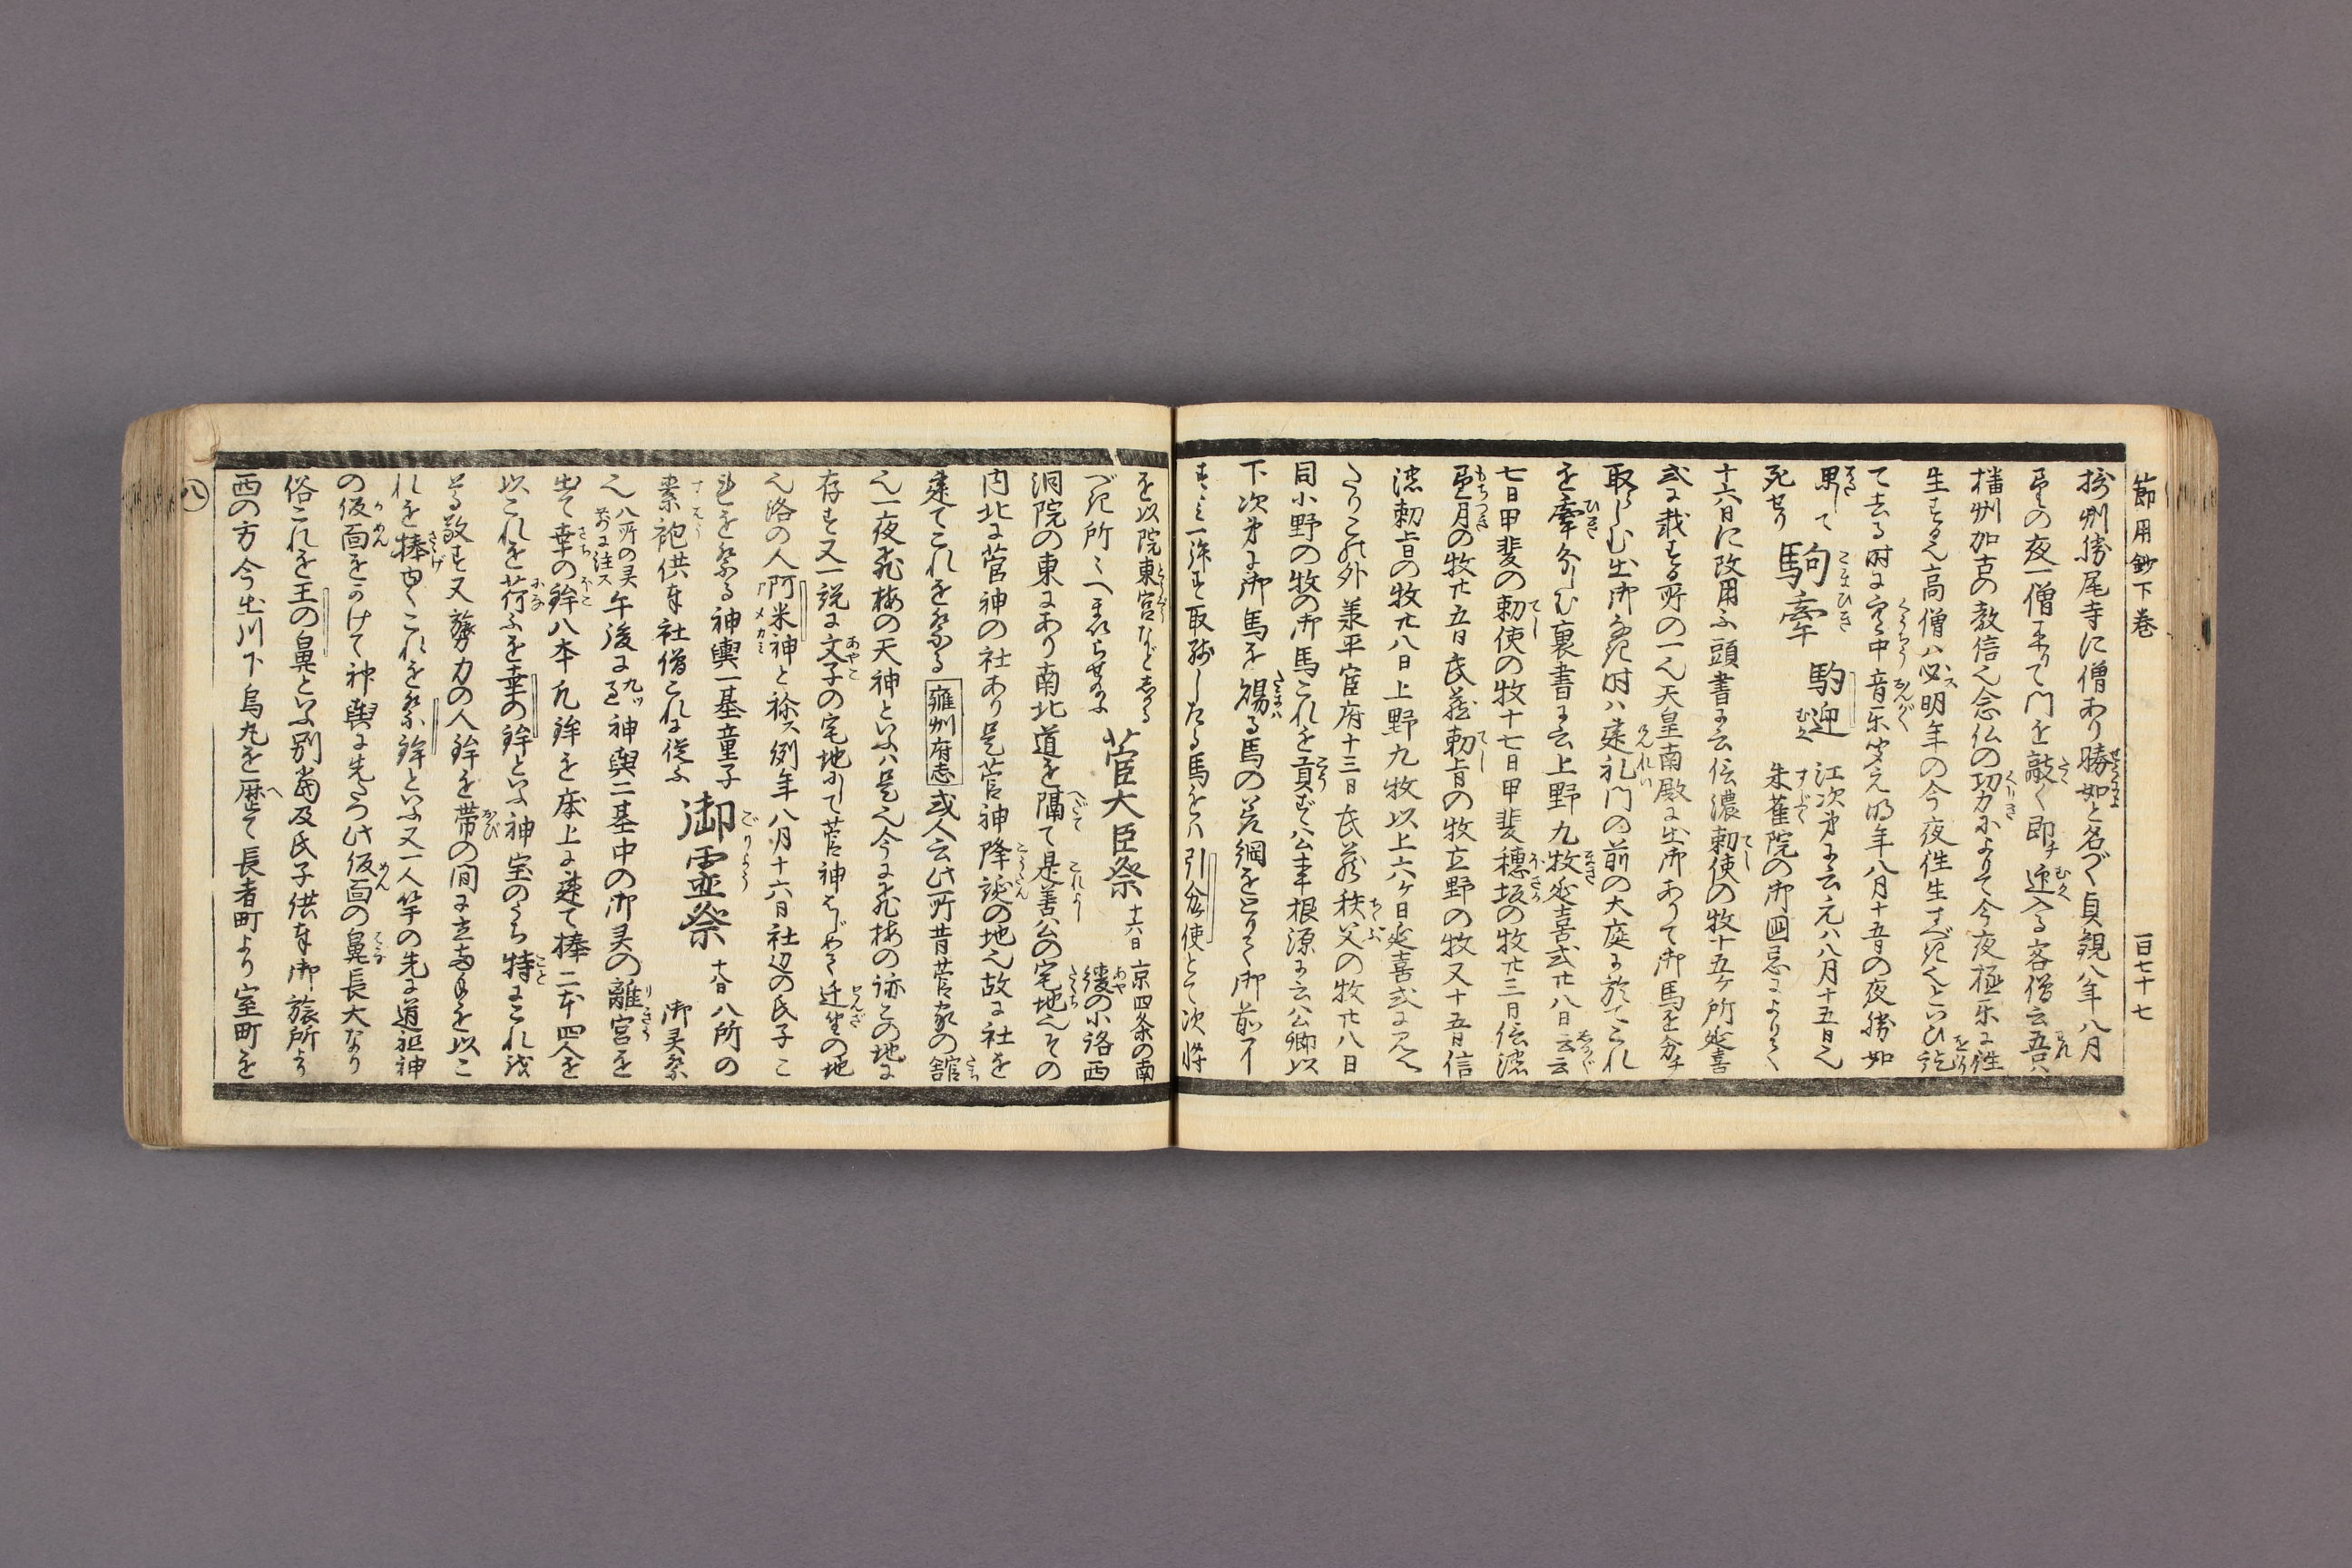 節用鈔下巻　百七十七
摂州勝尾寺に僧あり勝如と名づく貞観八年八月
望の夜一僧来りて門を敲く即チ迎入る客僧云吾ハ
播州加古の教信也念仏の功力によりて今夜極楽に往
生する也高僧ハ必ス明年の今夜往生すべきといひ訖
て去る時に空中音楽聞え明年八月十五日の夜勝如
果して
死せり
駒牽　駒迎
江次第に云元ハ八月十五日也
朱雀院の御国忌によりて
十六日に改用ふ頭書に云信濃勅使の牧十五ケ所延喜
式に載する所の一也天皇南殿に出御ありて御馬を分チ
取らしむ出御なき時ハ建礼門の前の大庭に於てこれ
を牽分しむ裏書に云上野九牧延喜式廿八日云云
七日甲斐の勅使の牧十七日甲斐穂坂の牧廿三日信濃
望月の牧廿五日武蔵勅旨の牧立野の牧又十五日信
濃勅旨の牧廿八日上野九牧以上六ケ日延喜式に見え
たりこの外承平官府十三日武蔵秩父の牧廿八日
同小野の牧の御馬これを貢ず公事根源に云公卿以
下次第に御馬を賜る馬の差綱をとりて御前
取残したる馬をハ引分使とて次将
を以院東宮など
べき所へまゐらせ
菅大臣祭　十六日
京四条の南
綾の小路西
洞院の東にあり南北道を隔て是善公の宅地也その
内北に菅神の社あり是菅神降誕の地也故に社を
建てこれを祭る雍州府志或人云此所昔菅家の舘
也一夜飛梅の天神といふハ是也今に飛梅の跡この地に
存す又一説に文子の宅地にて菅神はじめて遷坐の地
也洛の人阿米神と称ス例年八月十六日社辺の氏子こ
れを祭る神輿一基童子
素袍供奉社僧これに従ふ
御霊祭　十八日
八所の
御灵祭
也八所の灵前に注ス午後に九ツ神輿二基中の御灵の離宮を
出て幸の鉾八本九鉾を床上に建て捧二本四人を
以これを荷ふを幸の鉾といふ神宝のうち特にこれ
る敬す又膂力の人鉾を帯の間に立両手を以こ
れを捧ゆくこれを祭鉾といふ又一人竿の先に道祖神
の仮面をかけて神輿に先だつ此仮面の鼻長大なり
俗これを王の鼻といふ別当及氏子供奉御旅所より
西の方今出川下烏丸を歴て長者町より室町を
八